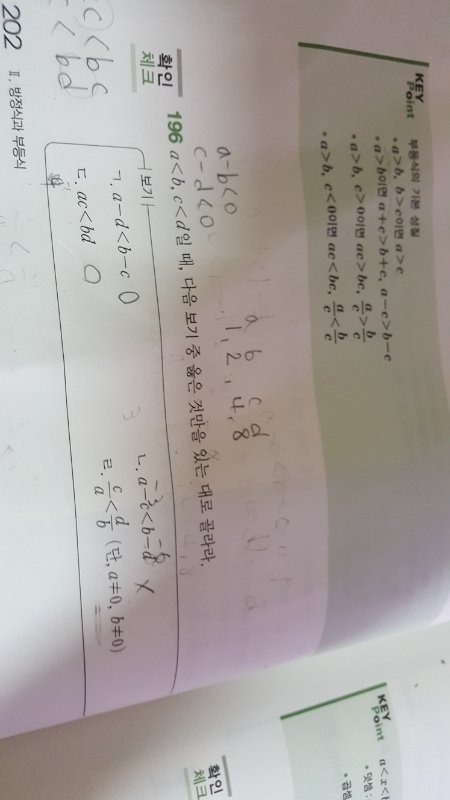 KEY Point
부등식의 기본 성질
• a>b, b>c이면 a>c
• a>b이면 a+c>b+c, a-c>b-c
• a>b, c>0이면 ac>bc, a/c > b/c
• a>b, c<0이면 ac<bc, a/c < b/c
a-b<0
c-d<0
a b c d
1, 2, 4, 8
확인 체크
196 a<b, c<d일 때, 다음 보기 중 옳은 것만을 있는 대로 골라라.
보기
ㄱ. a-d<b-c O
ㄴ. a-c<b-d X
ㄷ. ac<bd O
ㄹ. c/a < d/b (단, a≠0, b≠0)
c<bc
<bd
202 Ⅱ. 방정식과 부등식
KEY Point
a<x<
• 덧셈:
• 곱셈
확인 체크